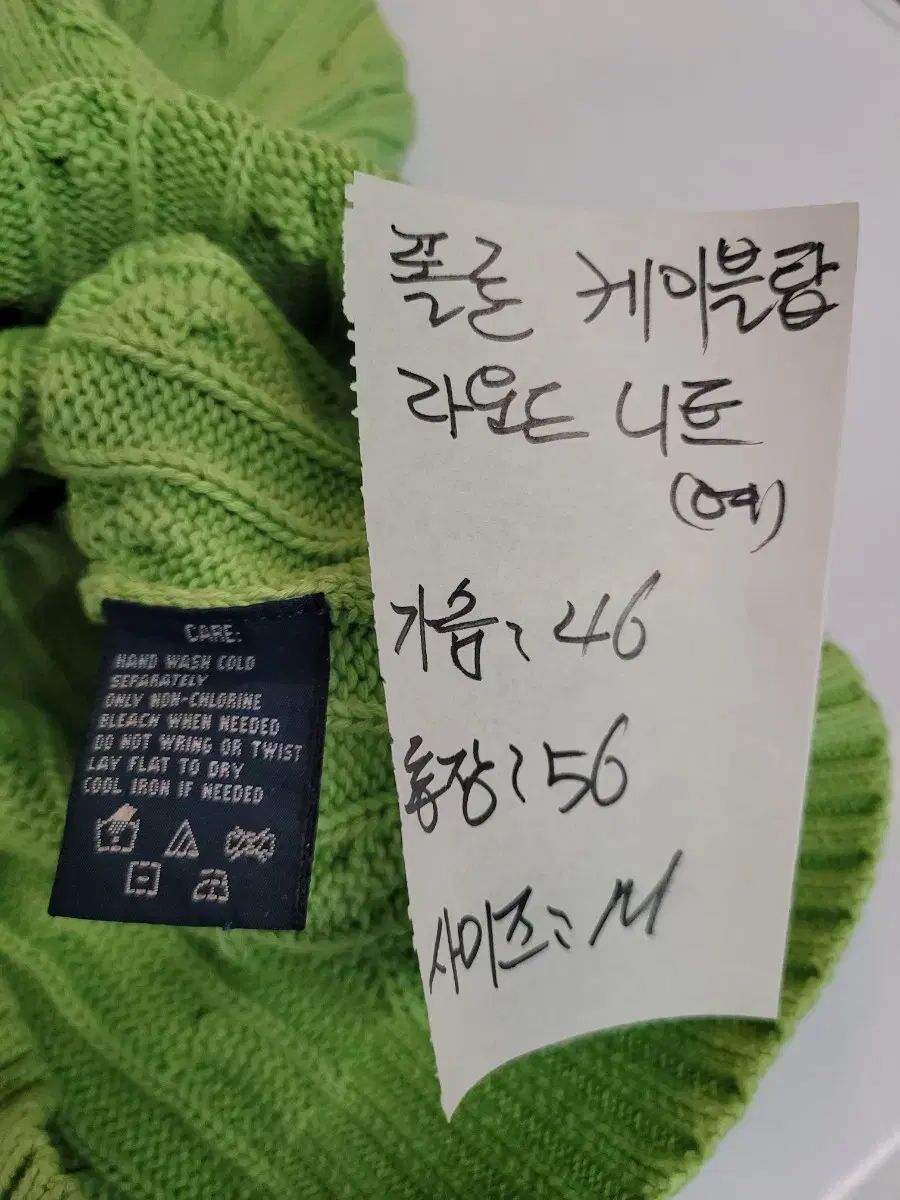 폴로 케이블탑
라운드 니트
(여)
가슴: 46
총장: 56
사이즈: M
CARE:
HAND WASH COLD
SEPARATELY
ONLY NON-CHLORINE
BLEACH WHEN NEEDED
DO NOT WRING OR TWIST
LAY FLAT TO DRY
COOL IRON IF NEEDED